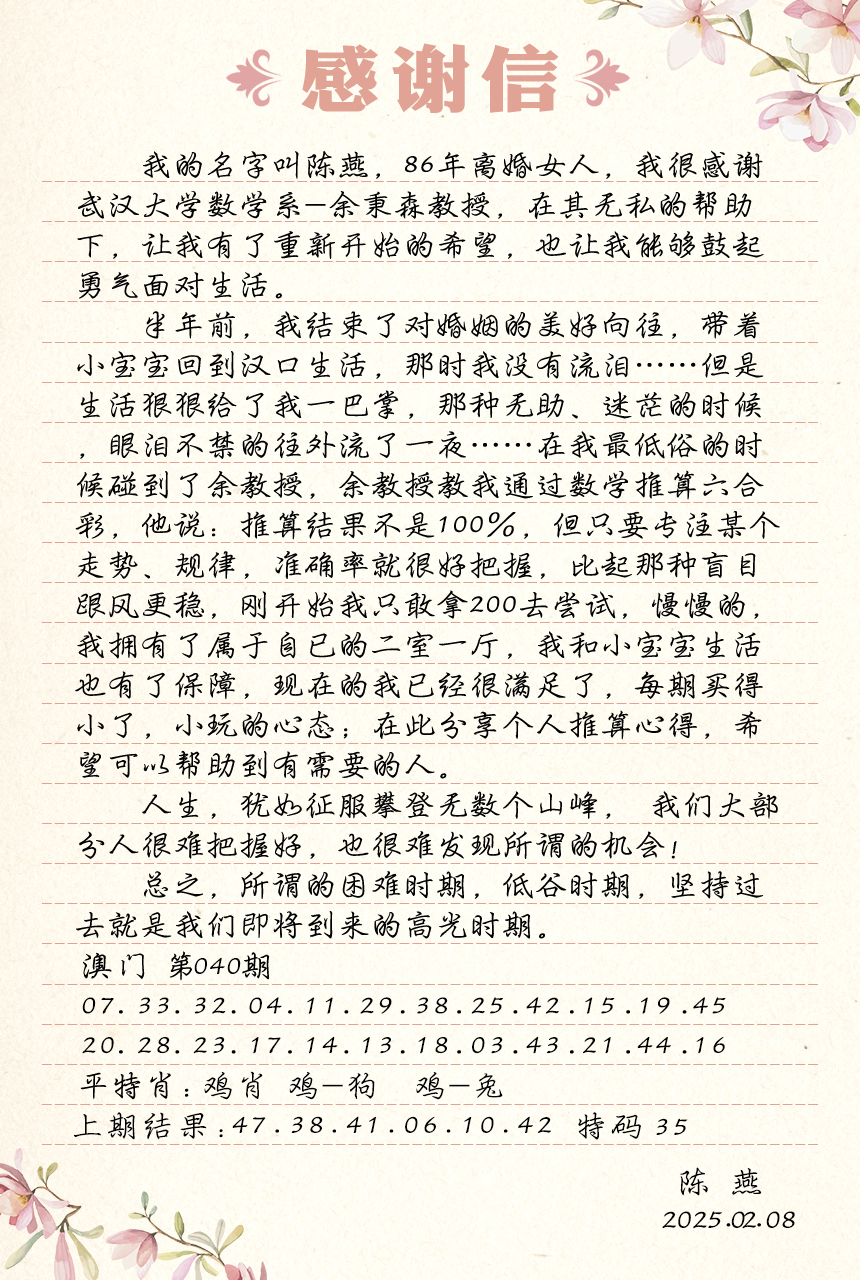 感谢信
我的名字叫陈燕，86年离婚女人，我很感谢
武汉大学数学系—余秉森教授，在其无私的帮助
下，让我有了重新开始的希望，也让我能够鼓起
勇气面对生活。
半年前，我结束了对婚姻的美好向往，带着
小宝宝回到汉口生活，那时我没有流泪……但是
生活狠狠给了我一巴掌，那种无助、迷茫的时候
，眼泪不禁的往外流了一夜……在我最低俗的时
候碰到了余教授，余教授教我通过数学推算六合
彩，他说：推算结果不是100%，但只要专注某个
走势、规律，准确率就很好把握，比起那种盲目
跟风更稳，刚开始我只敢拿200去尝试，慢慢的，
我拥有了属于自已的二室一厅，我和小宝宝生活
也有了保障，现在的我已经很满足了，每期买得
小了，小玩的心态；在此分享个人推算心得，希
望可以帮助到有需要的人。
人生，犹如征服攀登无数个山峰， 我们大部
分人很难把握好，也很难发现所谓的机会！
总之，所谓的困难时期，低谷时期，坚持过
去就是我们即将到来的高光时期。
澳门 第040期
07.33.32.04.11.29.38.25.42.15.19.45
20.28.23.17.14.13.18.03.43.21.44.16
平特肖：鸡肖 鸡—狗 鸡—兔
上期结果：47.38.41.06.10.42 特码 35
陈 燕
2025.02.08